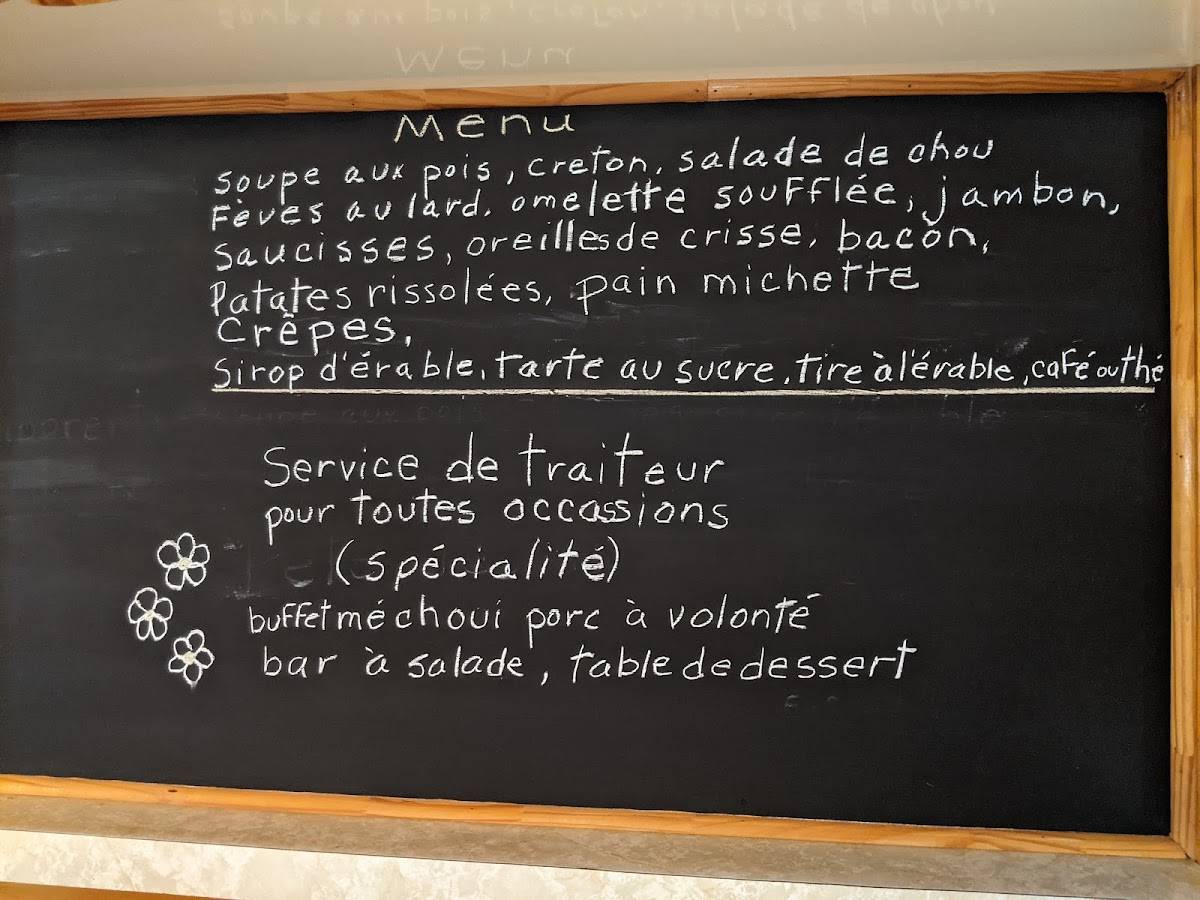 Menu
soupe aux pois, creton, salade de chou
Fèves au lard, omelette soufflée, jambon,
saucisses, oreilles de crisse, bacon,
Patates rissolées, pain michette
crêpes,
Sirop d'érable, tarte au sucre, tire à l'érable, café ou thé
Service de traiteur
pour toutes occassions
(spécialité)
buffet méchoui porc à volonté
bar à salade, table de dessert